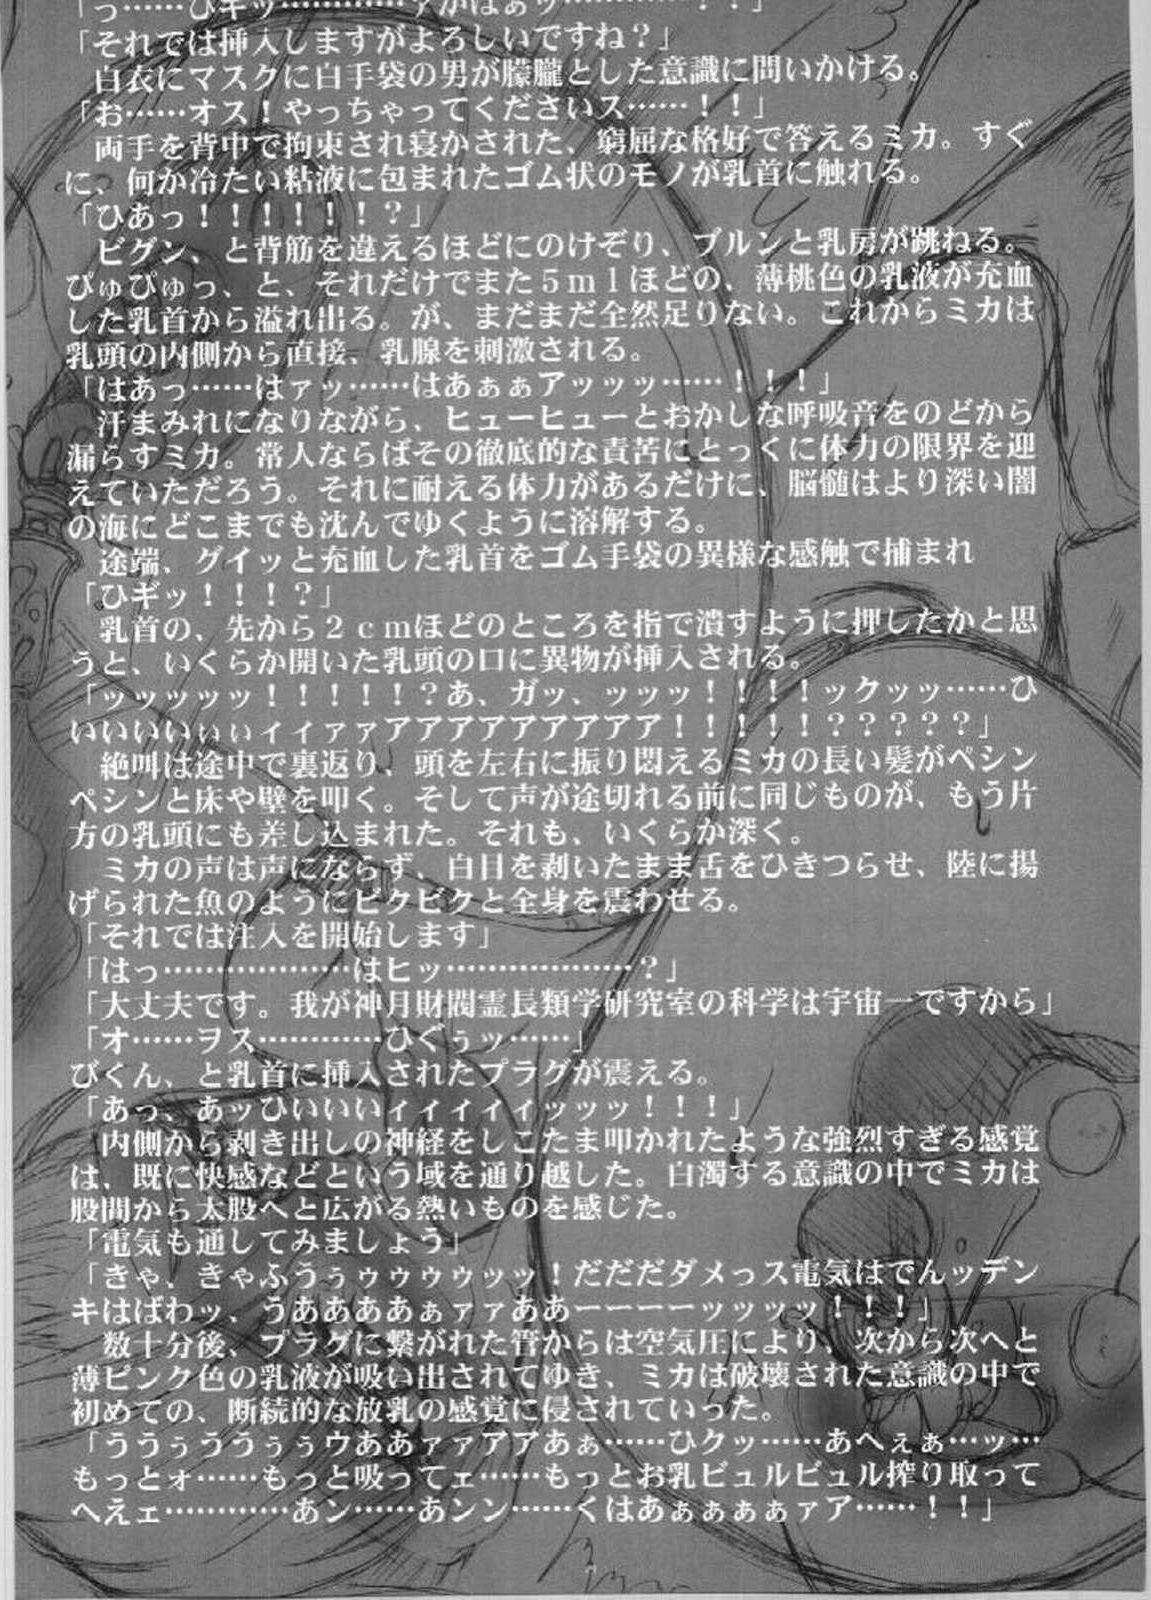 「それでは挿入しますがよろしいですね?」
　白衣にマスクに白手袋の男が朦朧とした意識に問いかける。
「お……オス!やっちゃってくださいス……!!」
　両手を背中で拘束され寝かされた、窮屈な格好で答えるミカ。すぐ
に、何か冷たい粘液に包まれたゴム状のモノが乳首に触れる。
「ひあっ!!!!!!!?」
　ビグン、と背筋を違えるほどにのけぞり、ブルンと乳房が跳ねる。
ぴゅぴゅっ、と、それだけでまた5mlほどの、薄桃色の乳液が充血
した乳首から溢れ出る。が、まだまだ全然足りない。これからミカは
乳頭の内側から直接、乳腺を刺激される。
「はあっ……はァッ……はあぁぁアッッッ……!!!」
　汗まみれになりながら、ヒューヒューとおかしな呼吸音をのどから
漏らすミカ。常人ならばその徹底的な責苦にとっくに体力の限界を迎
えていただろう。それに耐える体力があるだけに、脳髄はより深い闇
の海にどこまでも沈んでゆくように溶解する。
　途端、グイッと充血した乳首をゴム手袋の異様な感触で捕まれ
「ひギッ!!!?」
　乳首の、先から2cmほどのところを指で潰すように押したかと思
うと、いくらか開いた乳頭の口に異物が挿入される。
「ッッッッッ!!!!!?あ、ガッ、ッッッ!!!!ックッッ……ひ
いいいいいぃぃィィァァアアアアアアアアア!!!!!?????」
　絶叫は途中で裏返り、頭を左右に振り悶えるミカの長い髪がペシン
ペシンと床や壁を叩く。そして声が途切れる前に同じものが、もう片
方の乳頭にも差し込まれた。それも、いくらか深く。
　ミカの声は声にならず、白目を剥いたまま舌をひきつらせ、陸に揚
げられた魚のようにビクビクと全身を震わせる。
「それでは注入を開始します」
「はっ…………………はヒッ…………………?」
「大丈夫です。我が神月財閥霊長類学研究室の科学は宇宙一ですから」
「オ……ヲス…………ひぐぅッ……」
びくん、と乳首に挿入されたプラグが震える。
「あっ、あッひいいいィィィィィッッッ!!!」
　内側から剥き出しの神経をしこたま叩かれたような強烈すぎる感覚
は、既に快感などという域を通り越した。白濁する意識の中でミカは
股間から太股へと広がる熱いものを感じた。
「電気も通してみましょう」
「きゃ、きゃふうぅゥゥゥゥッッ!だだだダメっス電気はでんッデン
キはばわッ、うああああぁァァああーーーーッッッッ!!!」
　数十分後、プラグに繋がれた管からは空気圧により、次から次へと
薄ピンク色の乳液が吸い出されてゆき、ミカは破壊された意識の中で
初めての、断続的な放乳の感覚に侵されていった。
「ううぅううぅぅウああァァアアあぁ……ひクッ……あへぇぁ…ッ…
もっとォ……もっと吸ってェ……もっとお乳ビュルビュル搾り取って
へえェ…………あン……あンン……くはあぁぁぁぁァア……!!」